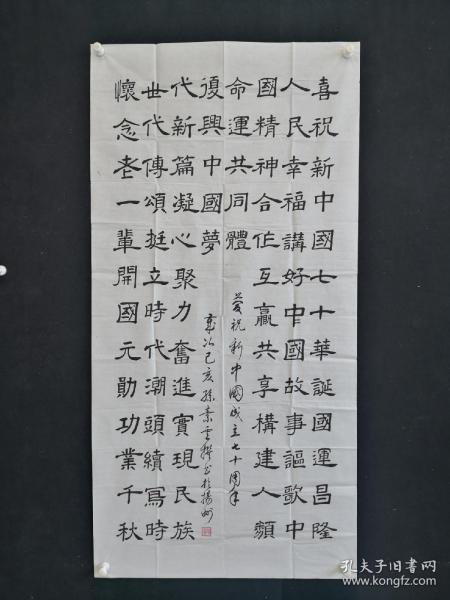 喜祝新中國七十華誕國運昌隆
人民幸福講好中國故事謳歌中
國精神合作互贏共享構建人類
命運共同體
慶祝新中國成立七十周年
懷念老一輩開國元勛功業千秋
世代傳頌挺立時代潮頭續寫時
代新篇凝心聚力奮進實現民族
復興中國夢
歲次己亥孫素雲撰書於揚州
孔夫子旧书网
www.kongfz.com